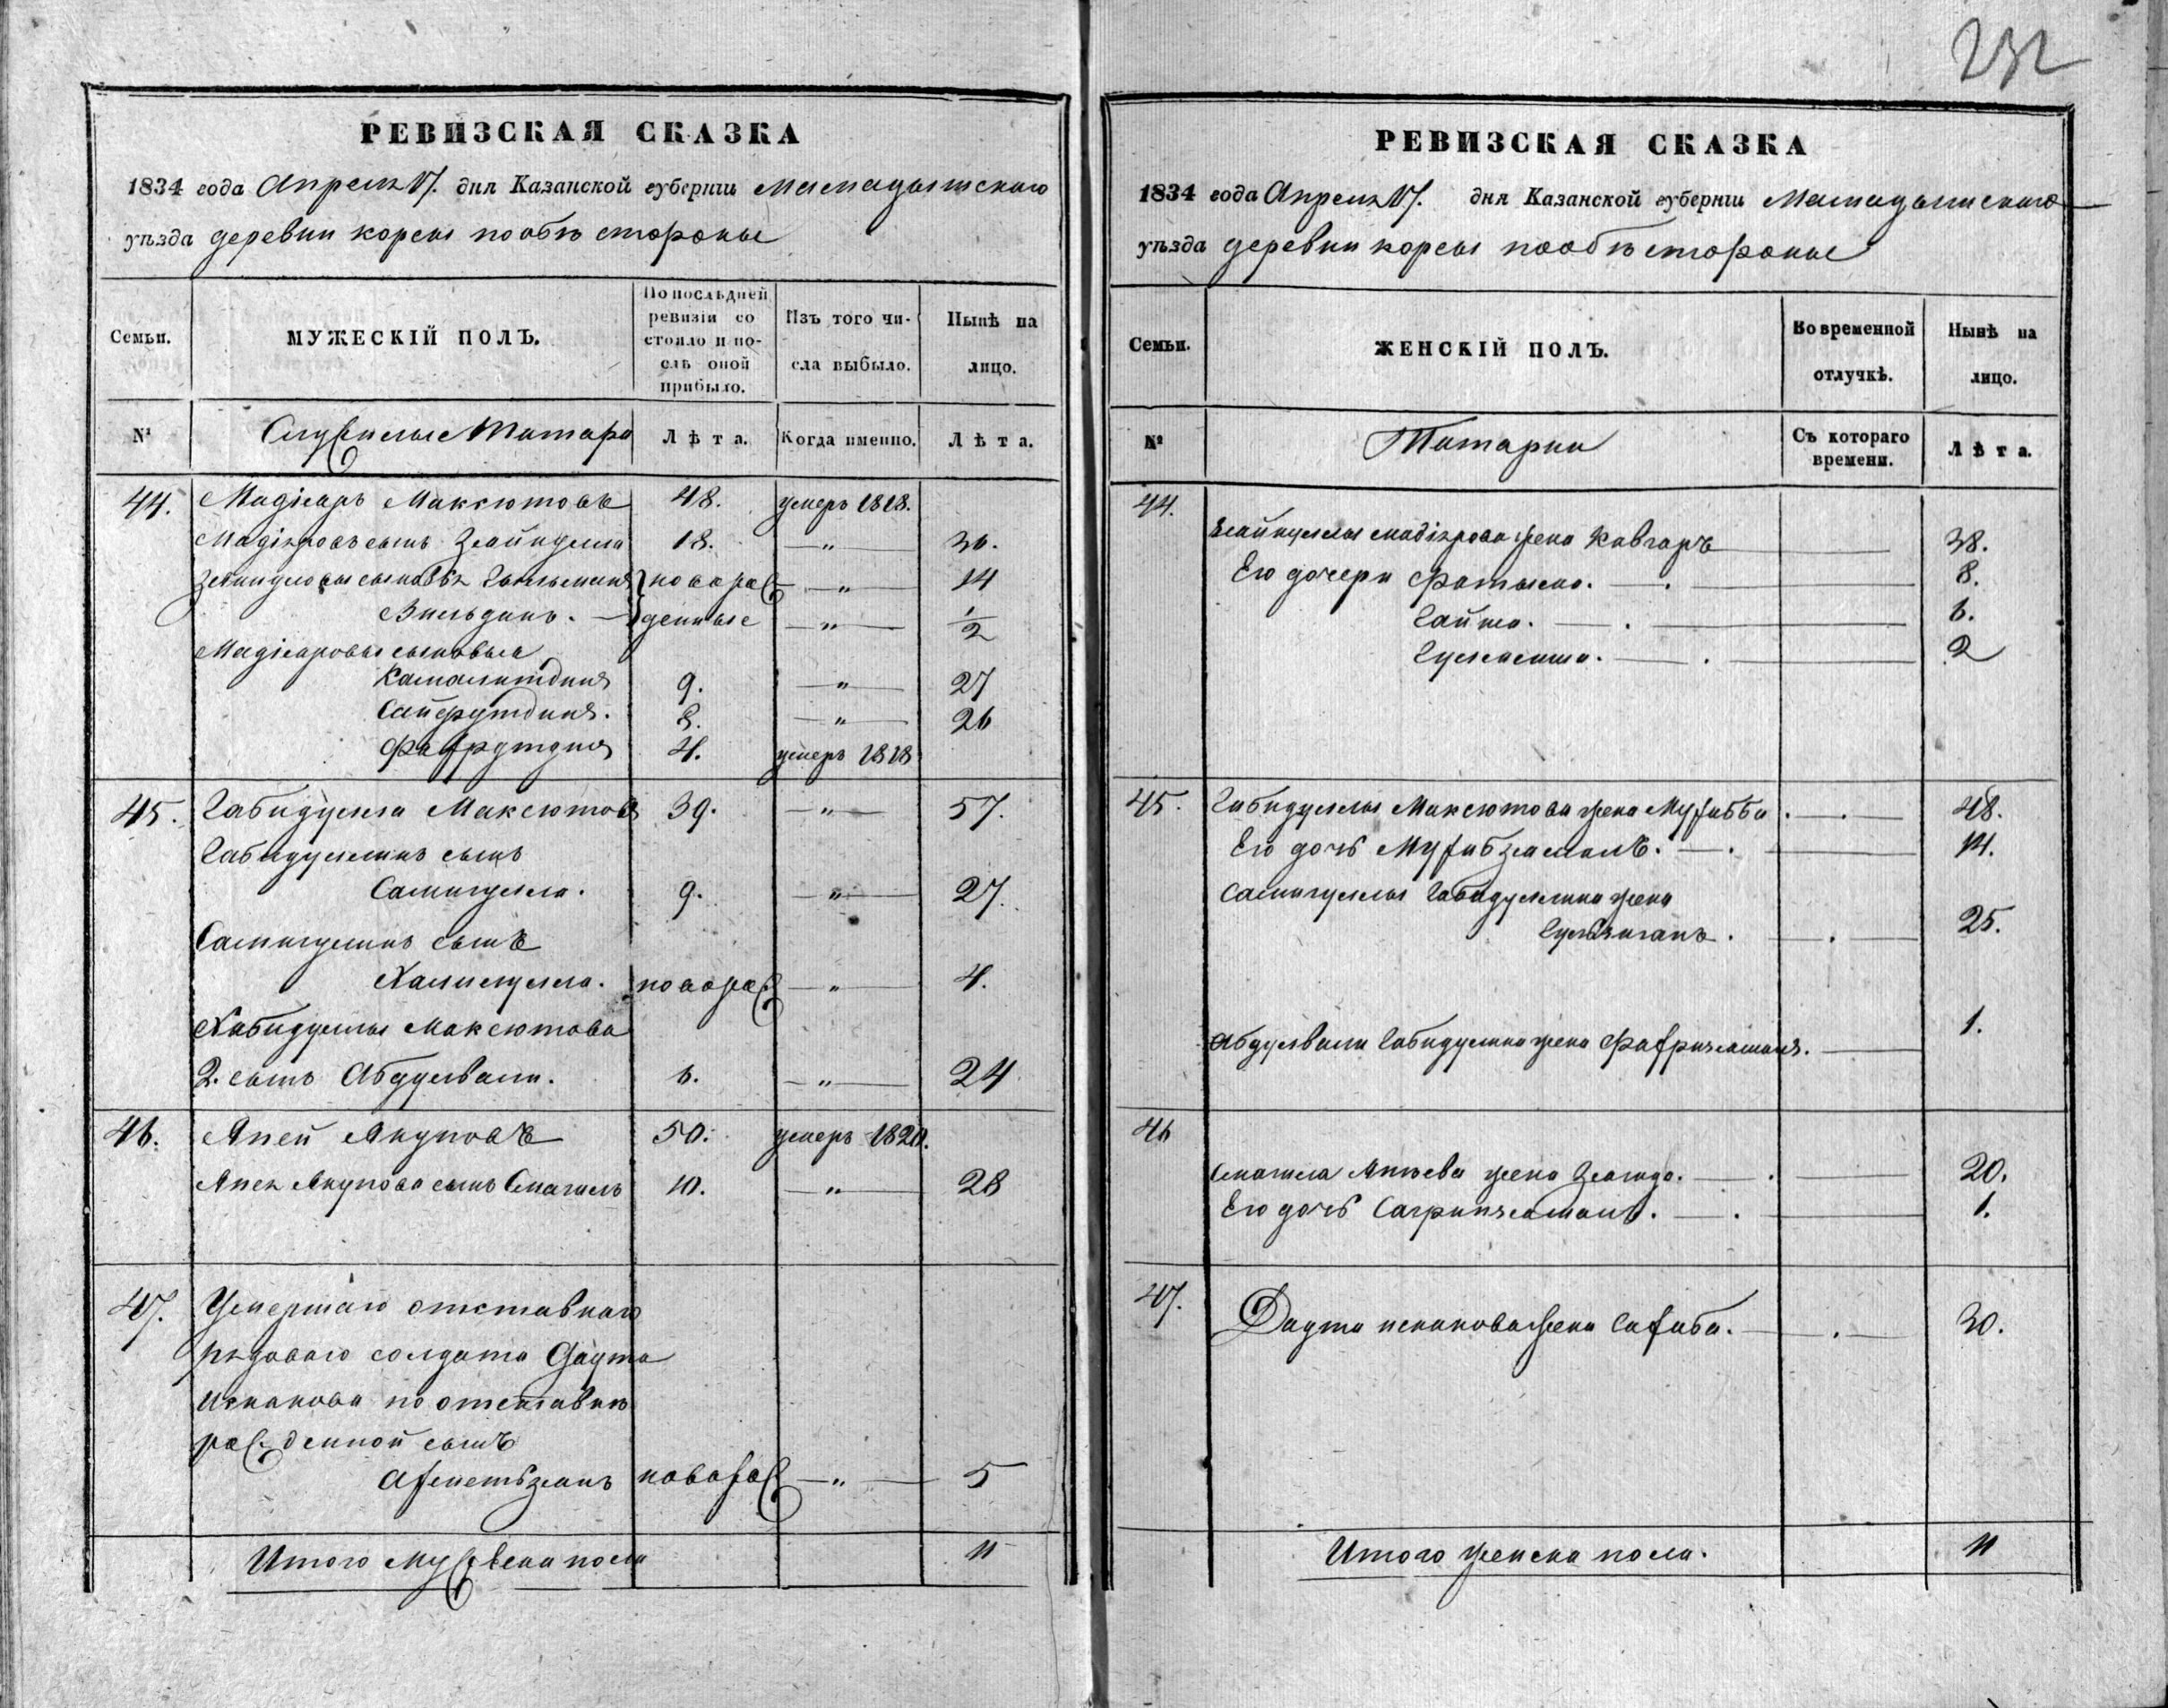 232
РЕВИЗСКАЯ СКАЗКА
1834 года Апреля 17. дня Казанской губернiи Мамадышскаго
уѣзда деревни корсы пообѣ стороны
Семьи.
МУЖЕСКIЙ ПОЛЪ.
По послѣдней ревизiи со стояло и по- слѣ оной прибыло.
Изъ того чи- сла выбыло.
Нынѣ на лицо.
№ Служилые Татара Лѣта. Когда именно. Лѣта.
44. Мадiяръ Максютовъ 48. умеръ 1818.
Мадiяровъ сынъ Зейнулла 18. — " — 36.
сыновья новорож — " — 14
денные — " — 1/2
Мадiяровы сыновья
Камалитдинъ 9. — " — 27
Сайфутдинъ. 8. — " — 26
Фахрутдинъ 4. умеръ 1818
45. Габидулла Максютовъ 39. — " — 57.
Габидуллинъ сынъ
Самигулла. 9. — " — 27.
Самигулинъ сынъ
Халиулла. новорож — " — 4.
Хабидуллы Максютова
2. сынъ Абдулвали. 6. — " — 24
46. Апей Якуповъ 50. умеръ 1820.
Апея Якупова сынъ Смагилъ 10. — " — 28
47. Умершаго отставнаго
рядоваго солдата Даута
Искакова по отставкѣ
рожденной сынъ
Ахметьзянъ новорож — " — 5
Итого мужеска пола 11
РЕВИЗСКАЯ СКАЗКА
1834 года Апреля 17. дня Казанской губернiи Мамадышскаго
уѣзда деревни корсы пообѣ стороны
Семьи.
ЖЕНСКIЙ ПОЛЪ.
Во временной отлучкѣ.
Нынѣ на лицо.
№ Татарки Съ котораго времени. Лѣта.
44.
Зейнуллы Мадiярова жена Кавгаръ 38.
Его дочери Фатыма. 8.
Гайша. 6.
2
45. Габидуллы Максютова жена Мухибба 48.
Его дочь Мухибзямалъ. 14.
Самигуллы Габидуллина жена
25.
Абдулвали Габидулина жена Фахризямалъ. 1.
46
Смагила Апѣева жена 20.
Его дочь 1.
47. Даута искакова жена Сахиба. 30.
Итого женска пола. 11